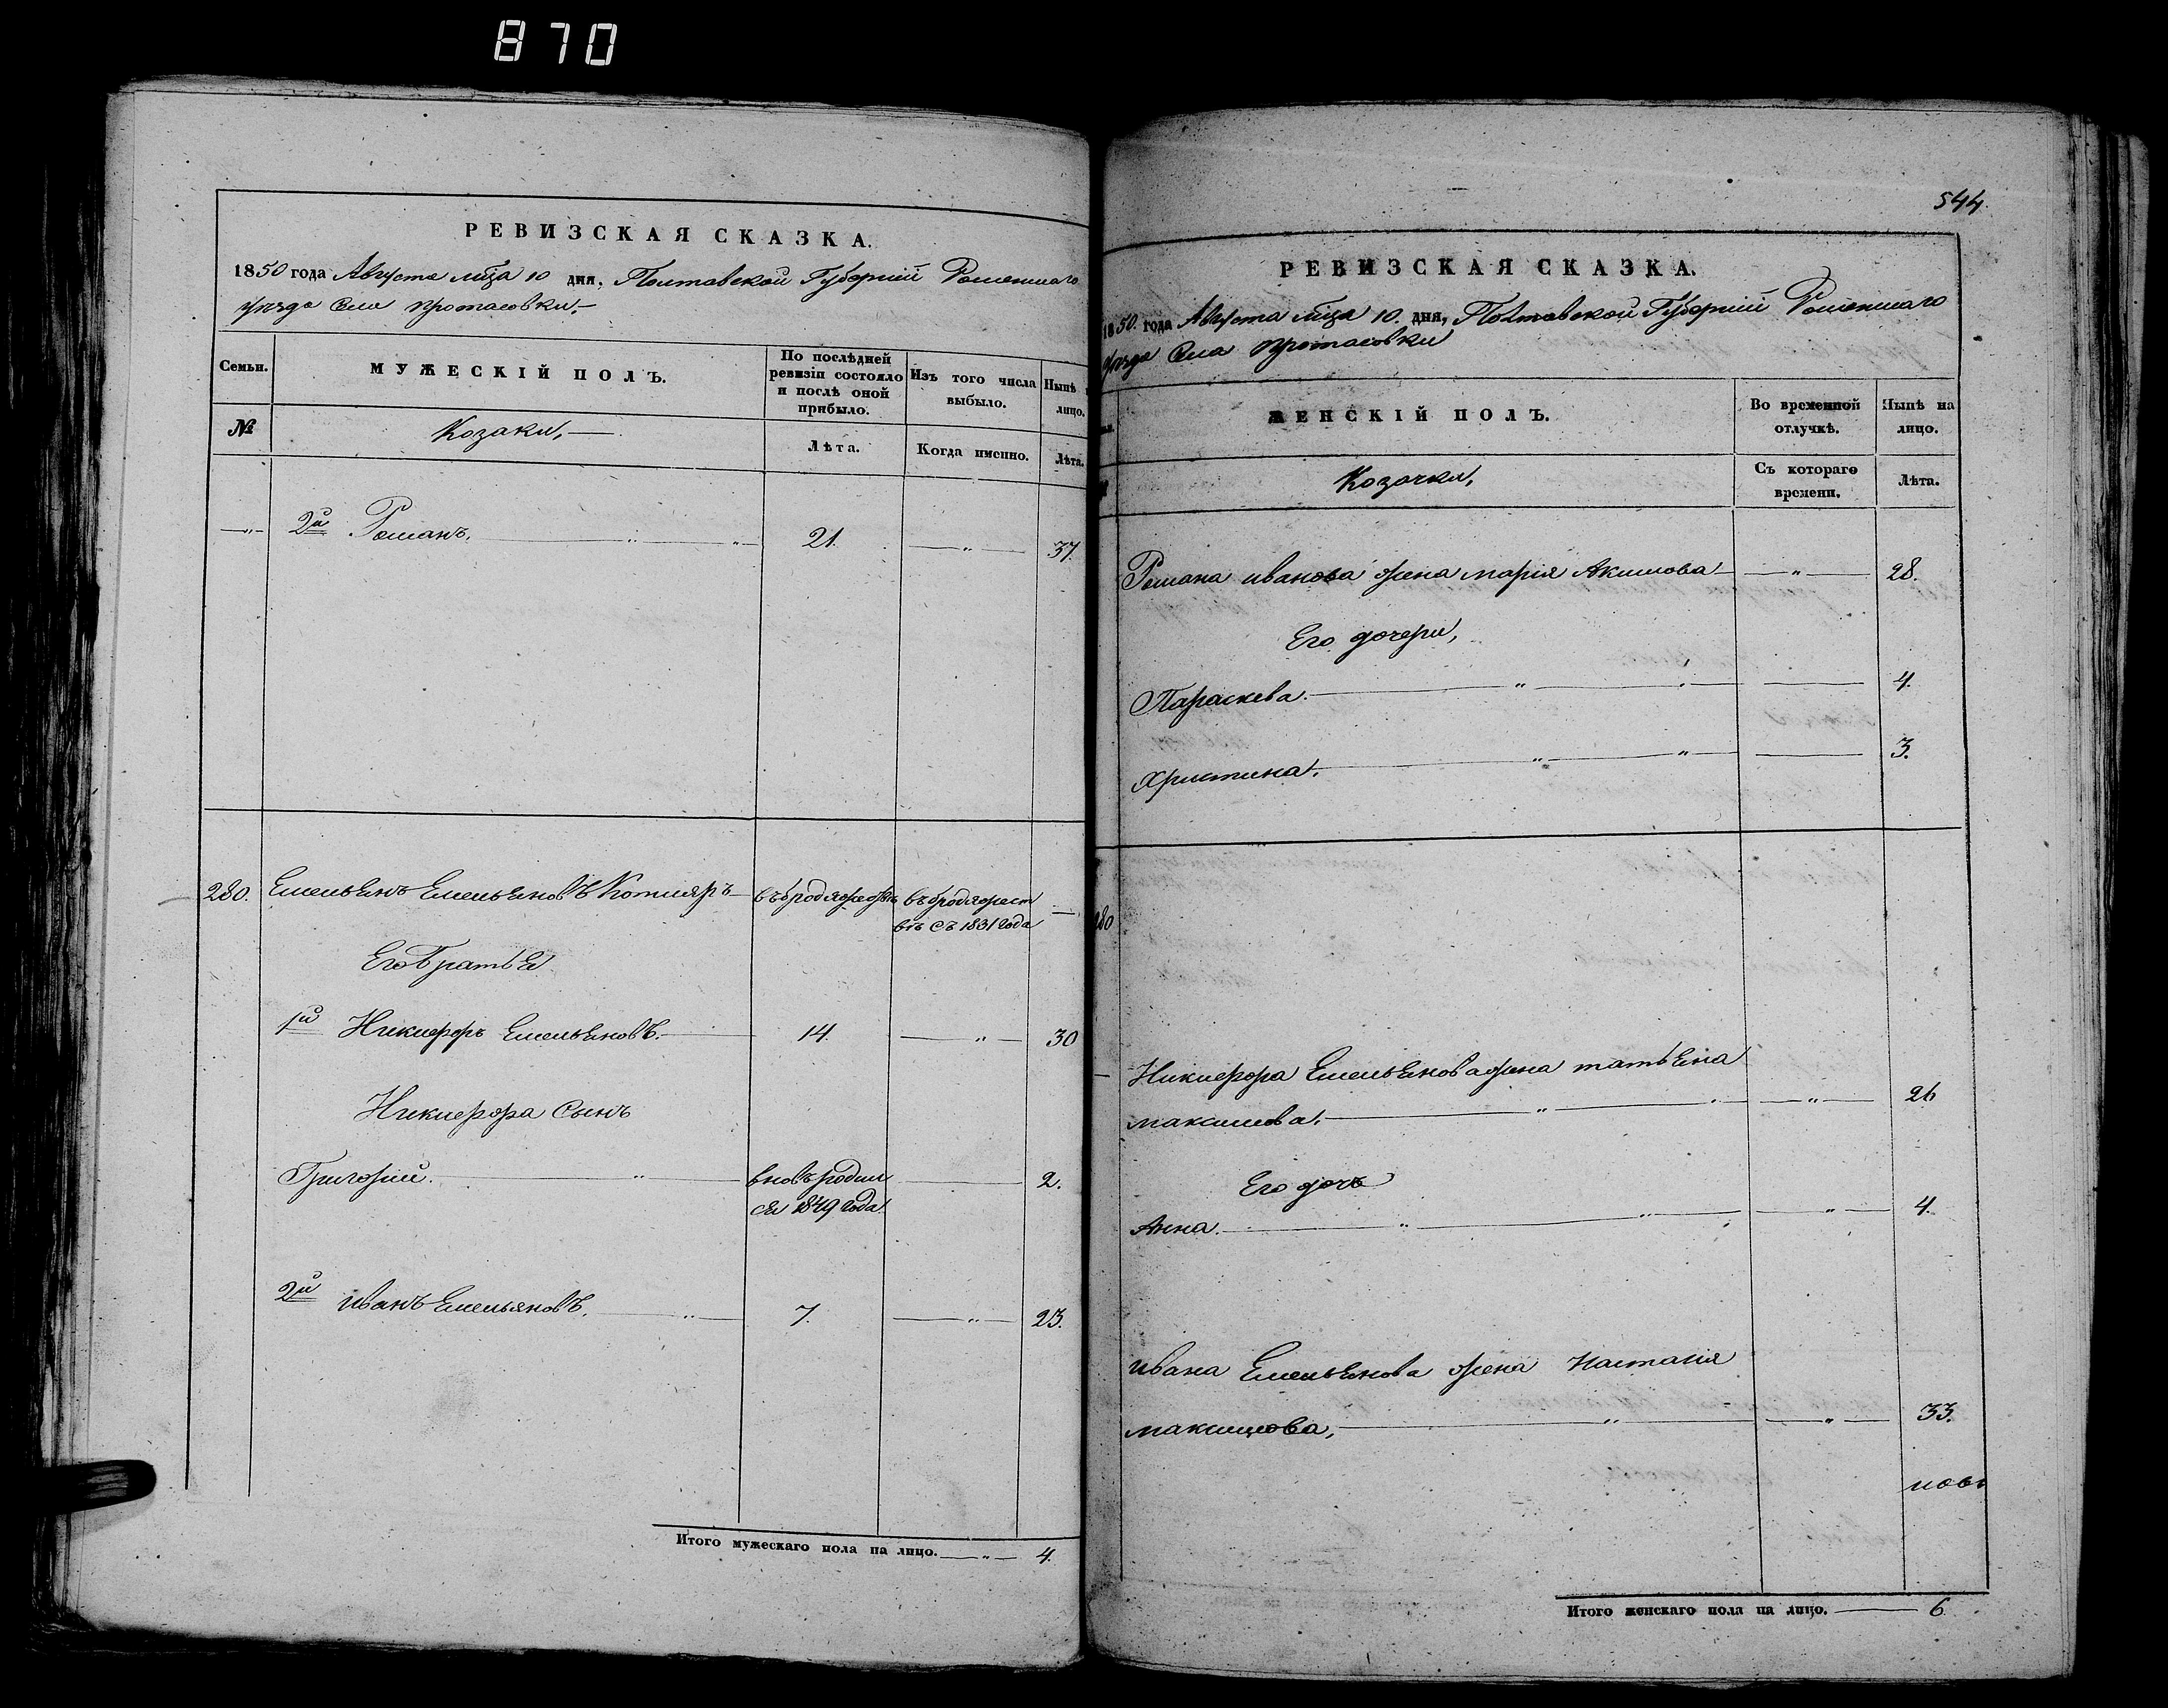 870
РЕВИЗСКАЯ СКАЗКА.
1850 года Августа мца 10 дня, Полтавской Губерніи Роменшаго
уѣзда Села Протасовки,
Семьи.
МУЖЕСКІЙ ПОЛЪ.
По послѣдней ревизіи состояло и послѣ оной прибыло.
Изъ того числа выбыло.
Нынѣ
лицо.
№
Козаки,
Лѣта.
Когда именно.
Лѣта.
2й Романъ. 21. 37.
280. Емельянъ Емельяновъ Котляръ
въ бродяжест
вѣ съ 1831 года
Его Братья
1й Никиефоръ Емельяновъ. 14. 30
Никиефора Сынъ
Григорий. вновь родил 2.
ся 1849 года.
2й Иванъ Емельяновъ. 7. 23.
Итого мужескаго пола на лицо. 4.
544
РЕВИЗСКАЯ СКАЗКА.
1850. года Августа мца 10. дня, Полтавской Губерніи Роменшаго
уѣзда Села Протасовки
ЖЕНСКІЙ ПОЛЪ.
Во временной отлучкѣ.
Нынѣ на лицо.
Козачки,
Съ котораго времени.
Лѣта.
Романа Иванова жена Марія Акимова 28.
Его дочери,
Параскева. 4.
Христина. 3.
280
Никиефора Емельянова жена Татьяна
Максимова. 26
Его дочь
Анна. 4.
Ивана Емельянова жена Настасія
Максимова, 33.
Итого женскаго пола на лицо. 6.